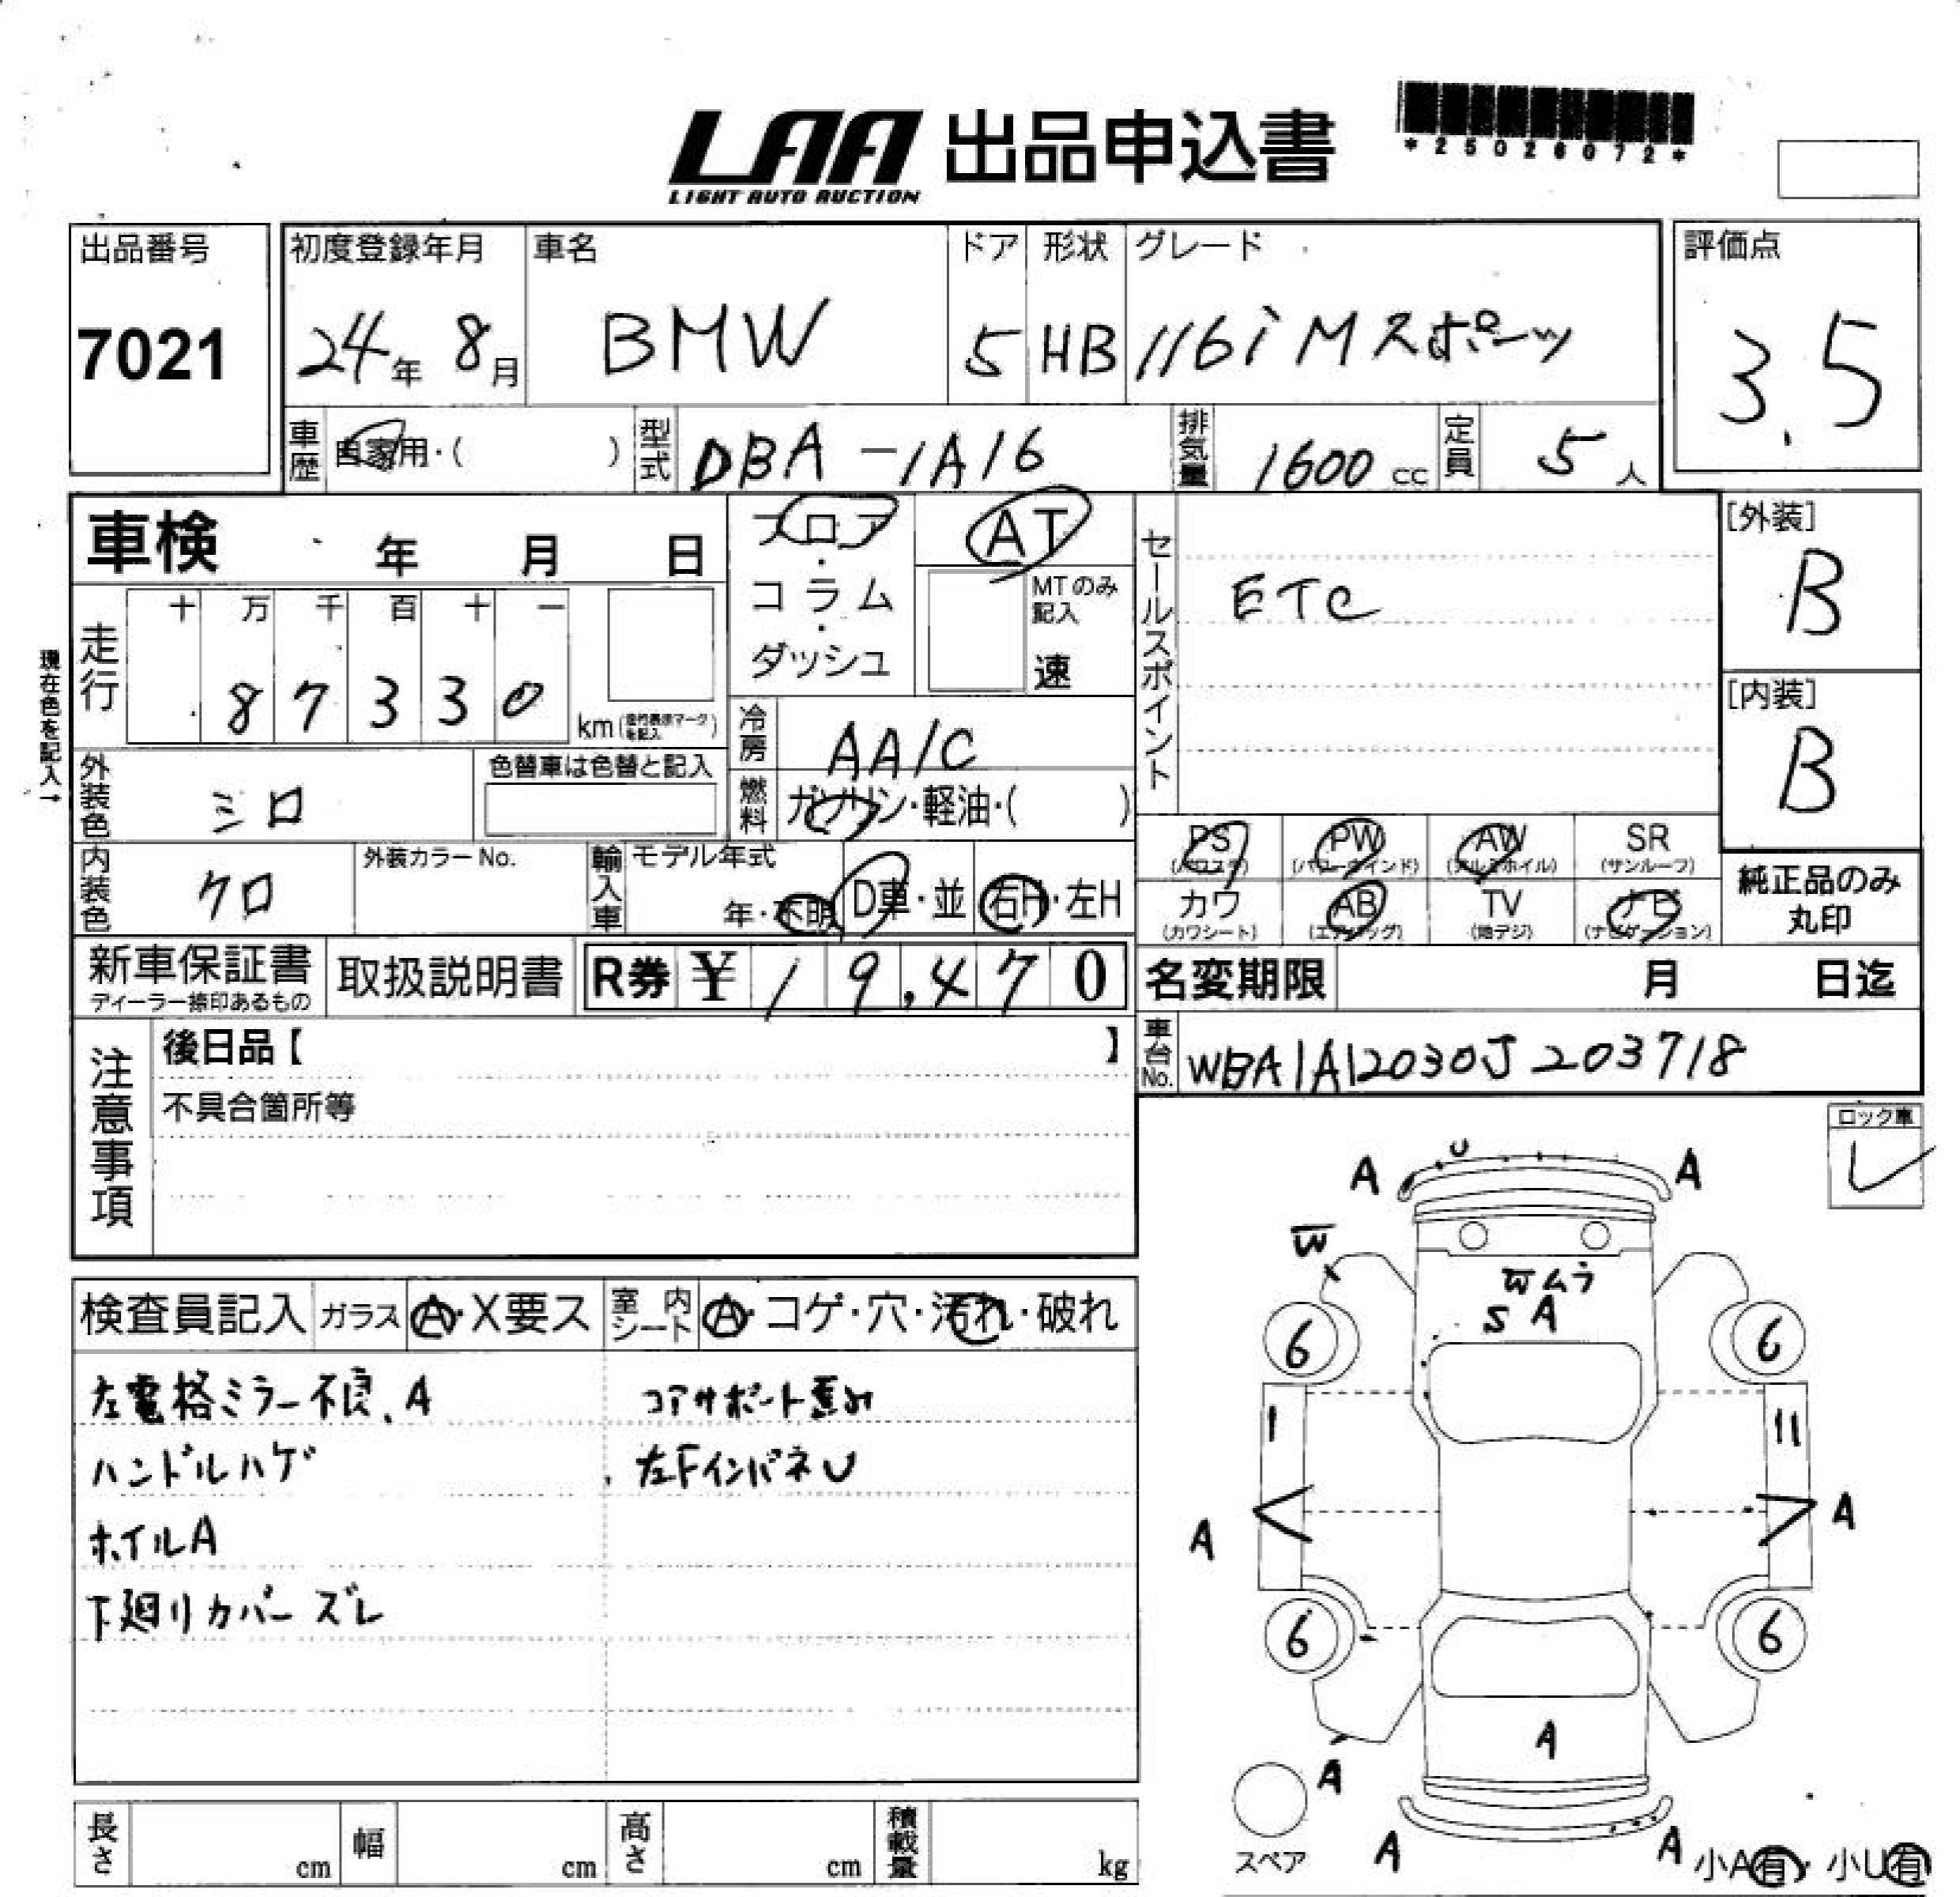 LAA 出品申込書
LIGHT AUTO AUCTION
*25026072*
出品番号
7021
初度登録年月
24年 8月
車名
BMW
ドア
5
形状
HB
グレード
116i Mスポーツ
評価点
3.5
車歴 自家用・( )
型式 DBA-1A16
排気量 1600 cc
定員 5人
車検 年 月 日
フロア・コラム・ダッシュ
AT
MTのみ記入
速
セールスポイント
ETC
[外装]
B
[内装]
B
現在色を記入→
走行
十 万 千 百 十 一
8 7 3 3 0
km
冷房 AA/C
燃料 ガソリン・軽油・( )
外装色 シロ
色替車は色替と記入
内装色 クロ
外装カラーNo.
輸入車
モデル年式
年・不明
D車・並
右H・左H
PS (パワステ)
PW (パワーウインド)
AW (アルミホイル)
SR (サンルーフ)
カワ (カワシート)
AB (エアバッグ)
TV (地デジ)
ナビ (ナビゲーション)
純正品のみ
丸印
新車保証書
ディーラー捺印あるもの
取扱説明書
R券 ¥ 19,470
名変期限 月 日迄
車台No. WBA1A12030J203718
注意事項
後日品【 】
不具合箇所等
ロック車
レ
検査員記入
ガラス A・X要ス
室内シート A・コゲ・穴・汚れ・破れ
左電格ミラー不良、A
コアサポート歪み
ハンドルハゲ
左FインパネU
ホイルA
下廻りカバーズレ
A U A
W
Wムラ
S A
6 6
A A
6 6
A
A
スペア
A A
小A有・小U有
長さ cm
幅 cm
高さ cm
積載量 kg